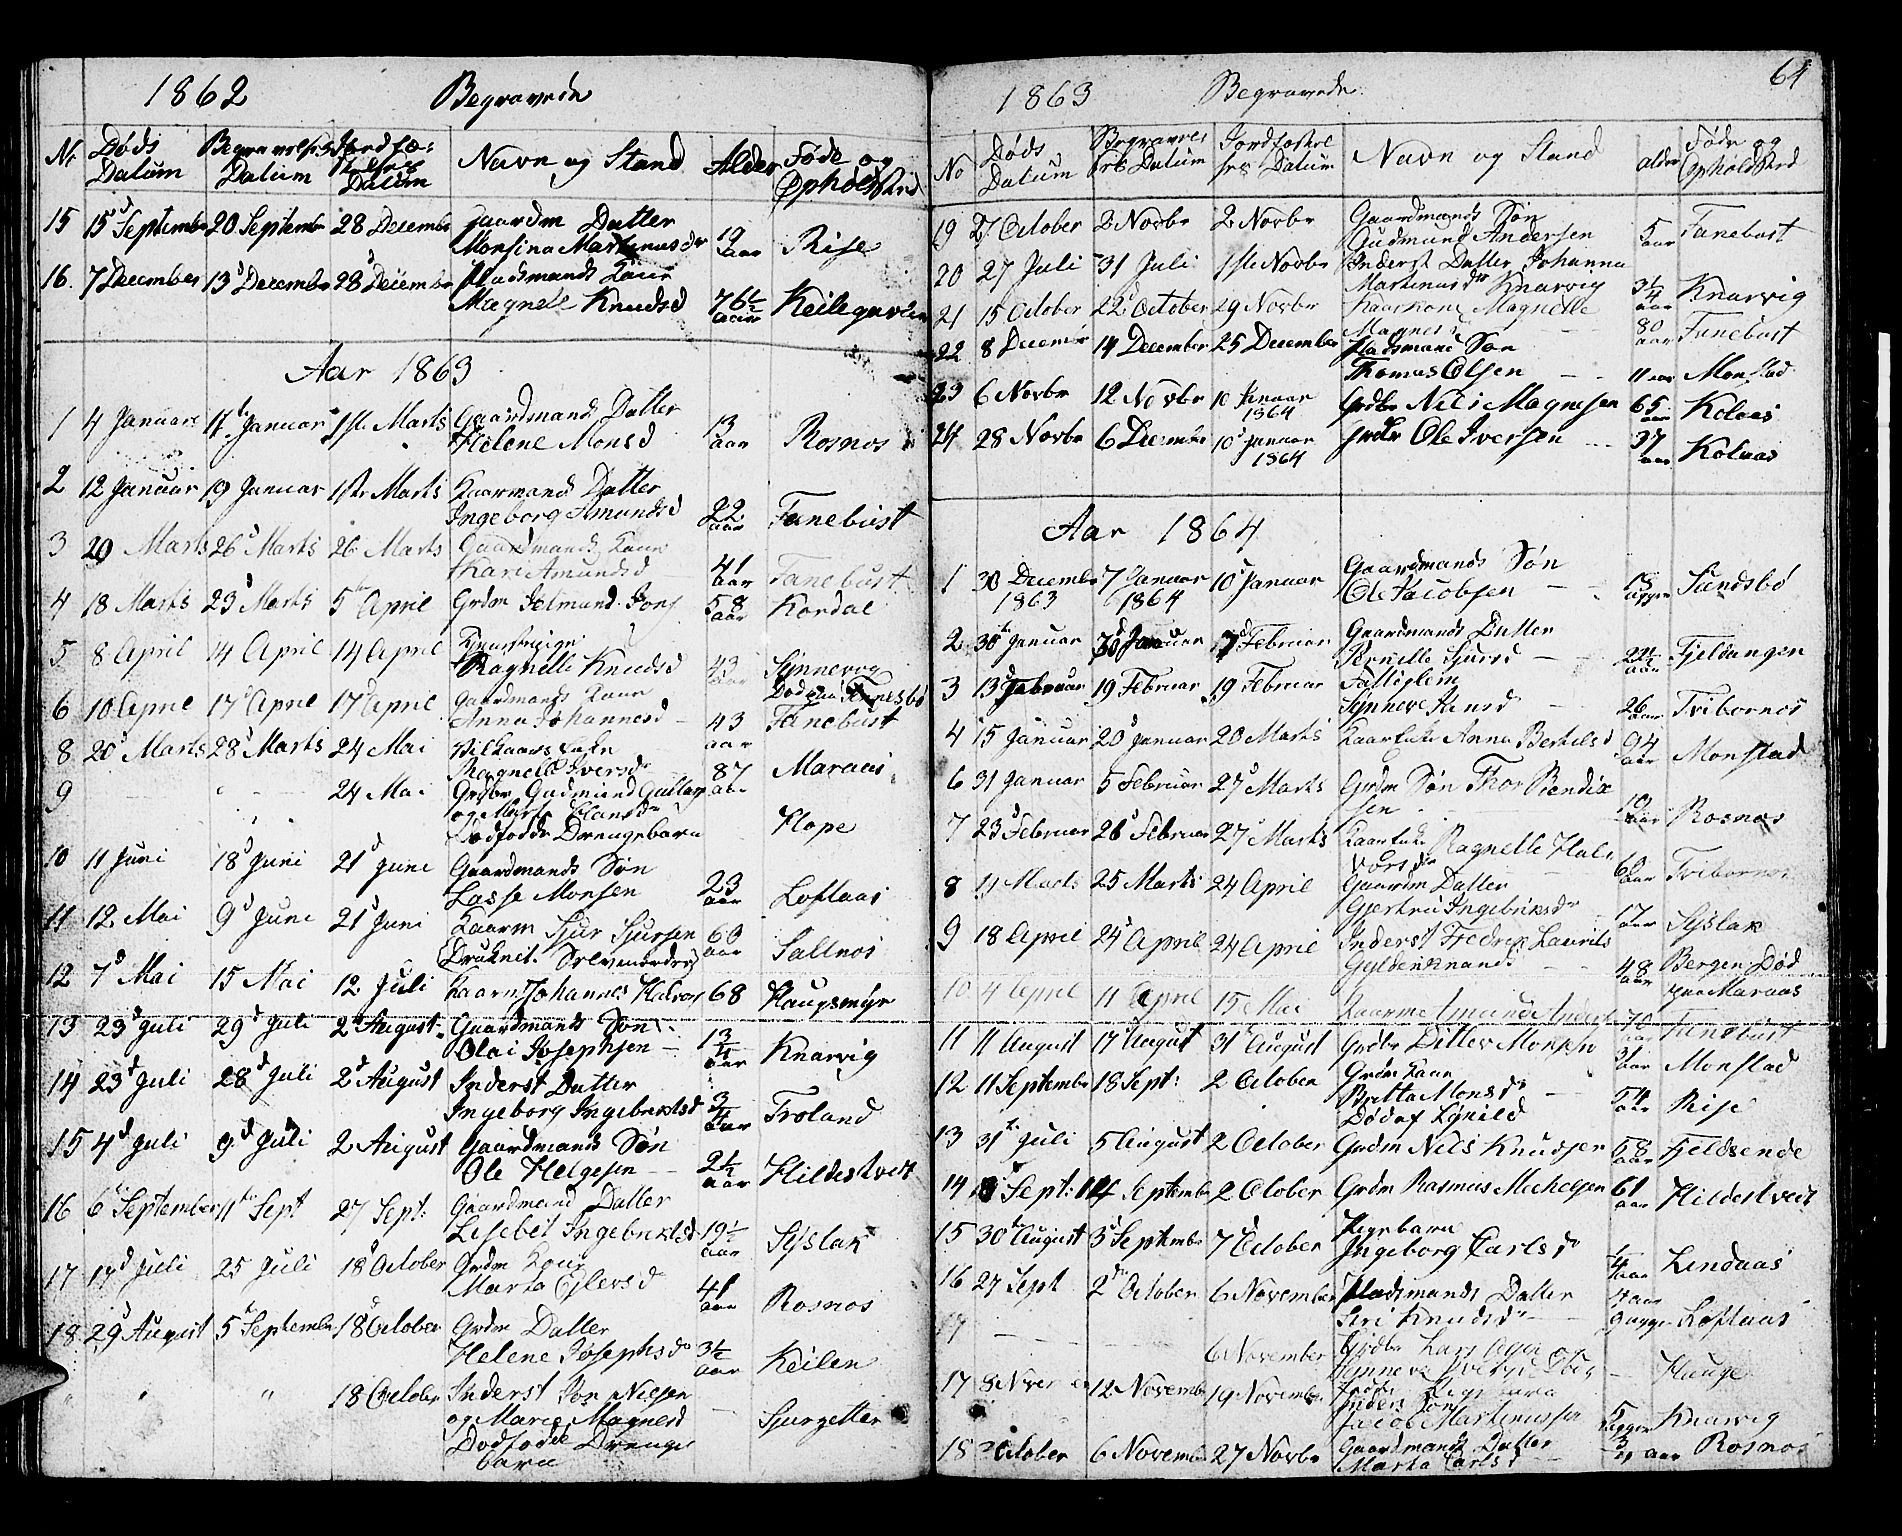 1862 Begravede
Nr Døds Datum Begravelses Datum Jordfæstelses Datum Navn og Stand Alder Føde og Opholdsted
15 15d Septembr 20 Septembr 28 Decembr Gaardm Datter
Monsina Martinusdr 19 aar Rise
16. 7 December 13d Decembr 28d Decembr Pladsmands Kone
Magnele Knudsd 76½ aar Keilegavlen
Aar 1863
1 4 Januar 17de Januar 1ste Marts Gaardmands Datter
Helene Monsd 13 aar Rosnos
2 12 Januar 19 Januar 1ste Marts Kaarmand Datter
Ingeborg Amundsd 22 aar Fanebust
3 20 Marts 26d Marts 26 Marts Gaardmands Kone
Kari Amundsd 41 aar Fanebust
4 18 Marts 23d Marts 5te April Grdm Jetmund Jons 58 aar Kordal
5 8 April 14 April 14 April
Magnelle Knudsd 43 aar Synnevog
Død paa Fonnesbø
6 10 April 17d April 17d April Gaardmands Kone
Anna Johannesd 43 aar Fanebust
8 20d Marts 28d Marts 24 Mai Vilkaars Enke
Magnele Iversdr 87 aar Maraas
9 24 Mai Grdbr Gudmund Gullags
og Marta Hansdr
Dødfødde Drengebarn Hope
10 11 Juni 18d Juni 21d Juni Gaardmands Søn
Lasse Monsen 23 aar Loftaas
11 12 Mai 9d Juni 21d Juni Kaarm Sjur Sjursen 60 aar Saltnos
Druknet.
12 7d Mai 15 Mai 12 Juli Kaarm Johannes Halvors 68 Haugsmyr
13 23d Juli 29d Juli 2d August Gaardmands Søn
Olai Josephsen 1¾ aar Knarvig
14 23d Juli 28d Juli 2d August Inderst Datter
Ingeborg Ingebriktsd ¾ aar Troland
15 4d Juli 9d Juli 2 August Gaardmands Søn
Ole Helgesen 2½ aar Hildestvedt
16 6te September 11te Sept 27 Sept: Gaardmand Datter
Lisebet Ingebriktsd 19½ aar Syslak
17 17d Juli 25 Juli 18d October Grdm Kone
Marta Eylersd 41 aar Rosnos
18 29d August 5te Septembr 18 October Grdm Datter
Helene Josephsdr 3½ aar Keilen
" " " 18 October Inderst Jon Nilsen
og Marie Magnesd Sjurgetter
Dødfødde Drenge
barn
1863 Begravede 64
No Døds Datum Begravelses Datum Jordfæstelses Datum Navn og Stand alder Føde og Opholdsted
19 27 October 2 Novbr 2 Novbr Gaardmands Søn
Gudmund Andersen 5 aar Fanebust
20 27 Juli 31 Juli 1ste Novbr Inderst Datter Johanna
Martinusdr Knarvig 3¼ aar Knarvig
21 15 October 22d October 29 Novbr Kaarkone Magnelle
Magnesd 80 aar Fanebust
22 8 Decembr 14 December 25 December Pladsmand Søn
Thomas Olsen 11 aar Monstad
23 6 Novbr 12 Novbr 10 Januar 1864 Grdbr Nils Magnesen 65 aar Kolaas
24 28 Novbr 6 Decembr 10d Januar 1864 Grdbr Ole Iversen 37 aar Kolaas
Aar 1864
1 30 Decembr 1863 7 Januar 1864 10d Januar Gaardmands Søn
Ole Jacobsen 18 uger Sundsbø
2 30te Januar 7d Februar Gaardmands Datter
Pernille Sjursd aar Fjeldangen
3 13d Februar 19 Februar 19 Februar Fattiglem
Synneve Hansd 26 aar Tribornos
4 15 Januar 20d Januar 20 Marts Kaarenke Anna Bertelsd 94 aar Monstad
6 31 Januar 5 Februar 27d Marts Grdm Søn Thor Bendix
sen 19 aar Rosnos
7 23d Februar 26d Februar 27d Marts Kaarenke Ragnelle Hal
vorsdr 60 aar Tribornos
8 11 Marts 25 Marts 24 April Gaardm Datter
Gjertru Ingebriktsdr 17 aar Syslak
9 18 April 24d April 24 April Inderst Fredrik Laurits
Gyldenkrands 48 aar Bergen Død
paa Maraas
10 4 April 11 April 15 Mai Kaarm Amund Anders 70 aar Fanebust
11 11 August 17d August 31te August Grdbr Ditlev Monsen 31 aar Monstad
12 11 Septembr 18 Sept: 2 October Grdm Kone
Britta Monsdr 54 aar Rise
13 31te Juli 5 August 2 October Grdm Nils Knudsen 68 aar Fjeldsende
14 Sept: 14 Septembr 2 October Grdm Rasmus Mickelsen 61 aar Hildestvedt
15 30te August 3d Septembr 7d October Pigebarn
Ingeborg Carlsdr ¼ aar Lindaas
16 27 Sept 2den October 6 November Pladsmands Datter
Siri Knudsdr 4 aar 9 uger Loftaas
6 November Grdbr Lars
Synneva
Hauge
17 8 Nover 12 Novembr 19 Novembr Inders Søn
Jacob Martinussen 5 uger Knarvig
18 October 6 Novembr 27 Novbr Gaardmands Datter
Marta Carlsd aar Rosnos